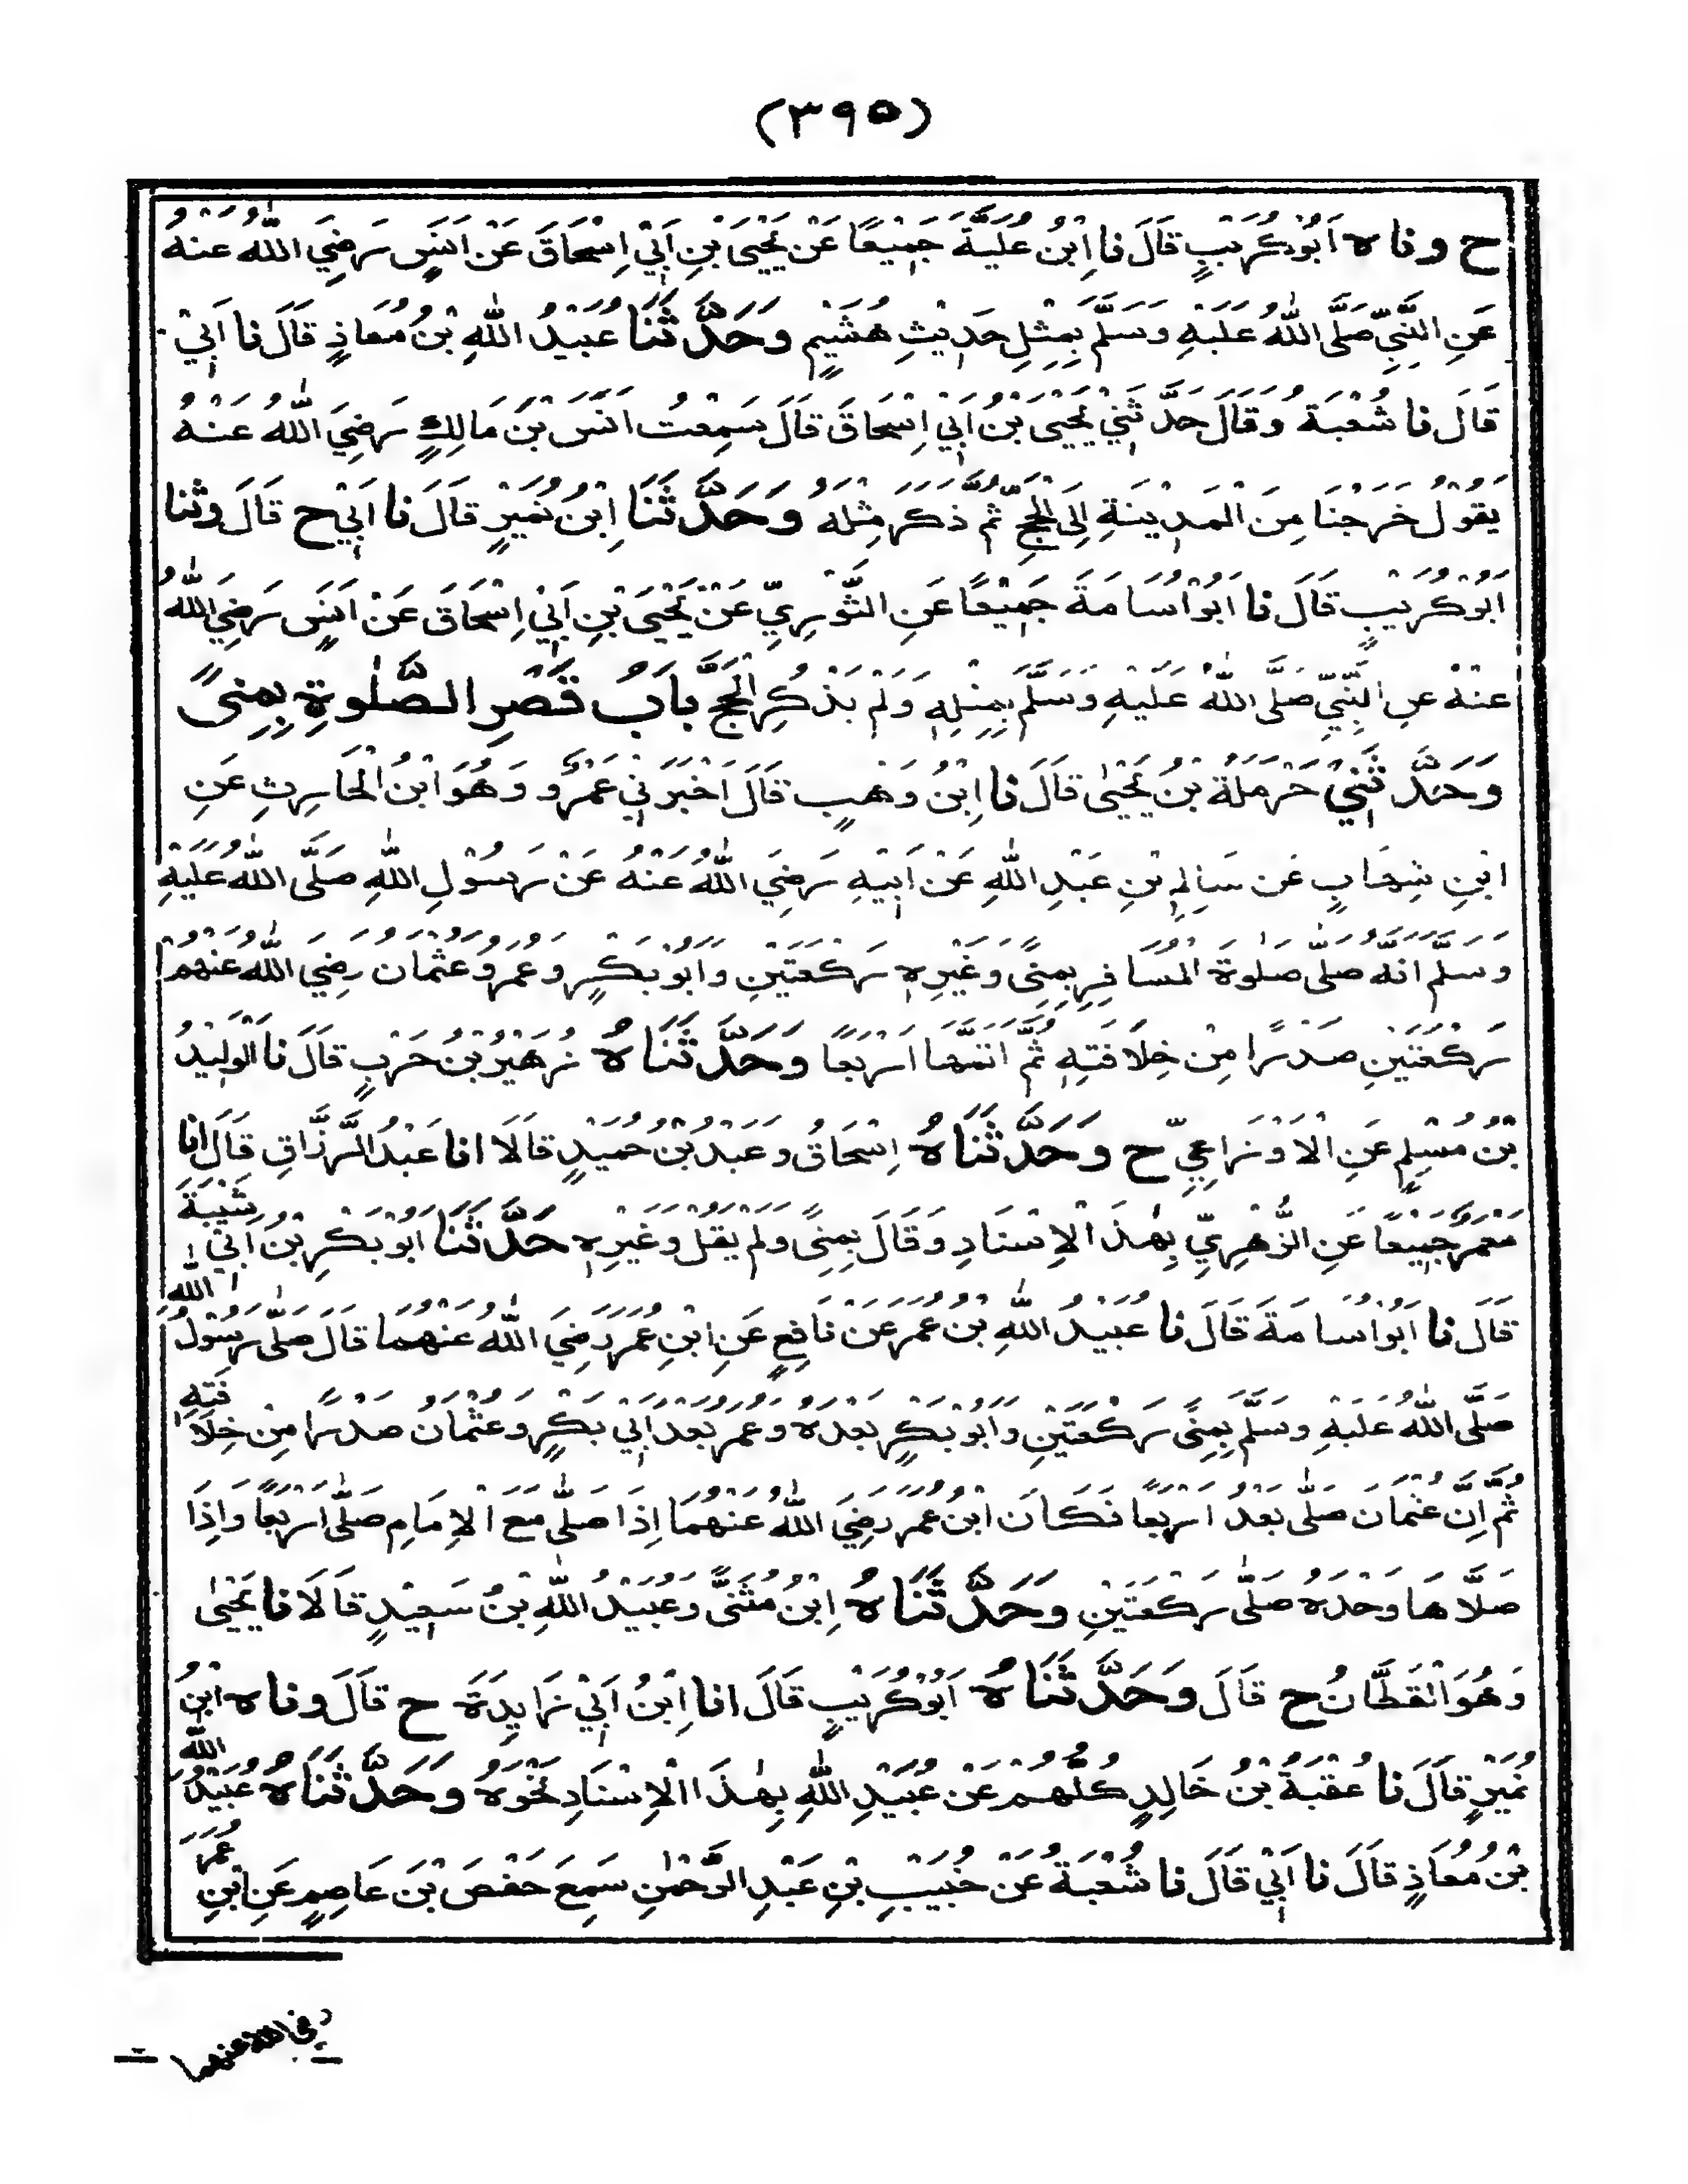 (٣٩٥)
ح وناه اَبُوْكُرَيْبٍ قَالَ نا اِبْنُ عُلَيَّةَ جَمِيْعًا عَنْ يَحْيَى بْنِ اَبِيْ اِسْحَاقَ عَنْ اَنَسٍ رَضِيَ اللّٰهُ عَنْهُ
عَنِ النَّبِيِّ صَلَّى اللّٰهُ عَلَيْهِ وَسَلَّمَ بِمِثْلِ حَدِيْثِ هُشَيْمٍ وَحَدَّثَنَا عُبَيْدُ اللّٰهِ بْنُ مُعَاذٍ قَالَ نا اَبِيْ
قَالَ نا شُعْبَةُ وَقَالَ حَدَّثَنِيْ يَحْيَى بْنُ اَبِيْ اِسْحَاقَ قَالَ سَمِعْتُ اَنَسَ بْنَ مَالِكٍ رَضِيَ اللّٰهُ عَنْهُ
يَقُوْلُ خَرَجْنَا مِنَ الْمَدِيْنَةِ اِلَى الْحَجِّ ثُمَّ ذَكَرَ مِثْلَهُ وَحَدَّثَنَا اِبْنُ نُمَيْرٍ قَالَ نا اَبِيْ ح قَالَ وثنا
اَبُوْكُرَيْبٍ قَالَ نا اَبُوْاُسَامَةَ جَمِيْعًا عَنِ الثَّوْرِيِّ عَنْ يَحْيَى بْنِ اَبِيْ اِسْحَاقَ عَنْ اَنَسٍ رَضِيَ اللّٰهُ
عَنْهُ عَنِ النَّبِيِّ صَلَّى اللّٰهُ عَلَيْهِ وَسَلَّمَ بِمِثْلِهِ وَلَمْ يَذْكُرِ الْحَجَّ بَابُ قَصْرِ الصَّلٰوةِ بِمِنًى
وَحَدَّثَنِيْ حَرْمَلَةُ بْنُ يَحْيٰى قَالَ نا اِبْنُ وَهْبٍ قَالَ اَخْبَرَنِيْ عَمْرٌو وَهُوَ ابْنُ الْحَارِثِ عَنِ
ابْنِ شِهَابٍ عَنْ سَالِمِ بْنِ عَبْدِ اللّٰهِ عَنْ اَبِيْهِ رَضِيَ اللّٰهُ عَنْهُ عَنْ رَسُوْلِ اللّٰهِ صَلَّى اللّٰهُ عَلَيْهِ
وَسَلَّمَ اَنَّهُ صَلّٰى صَلٰوةَ الْمُسَافِرِ بِمِنًى وَغَيْرِهِ رَكْعَتَيْنِ وَاَبُوْبَكْرٍ وَعُمَرُ وَعُثْمَانُ رَضِيَ اللّٰهُ عَنْهُمْ
رَكْعَتَيْنِ صَدْرًا مِنْ خِلَافَتِهِ ثُمَّ اَتَمَّهَا اَرْبَعًا وَحَدَّثَنَاهُ زُهَيْرُ بْنُ حَرْبٍ قَالَ نا الْوَلِيْدُ
بْنُ مُسْلِمٍ عَنِ الْاَوْزَاعِيِّ ح وَحَدَّثَنَاهُ اِسْحَاقُ وَعَبْدُ بْنُ حُمَيْدٍ قَالَا انا عَبْدُ الرَّزَّاقِ قَالَ انا
مَعْمَرٌ جَمِيْعًا عَنِ الزُّهْرِيِّ بِهٰذَ الْاِسْنَادِ وَقَالَ بِمِنًى وَلَمْ يَقُلْ وَغَيْرِهِ حَدَّثَنَا اَبُوْبَكْرِ بْنُ اَبِيْ شَيْبَةَ
قَالَ نا اَبُوْاُسَامَةَ قَالَ نا عُبَيْدُ اللّٰهِ بْنُ عُمَرَ عَنْ نَافِعٍ عَنِ ابْنِ عُمَرَ رَضِيَ اللّٰهُ عَنْهُمَا قَالَ صَلّٰى رَسُوْلُ اللّٰه
صَلَّى اللّٰهُ عَلَيْهِ وَسَلَّمَ بِمِنًى رَكْعَتَيْنِ وَاَبُوْبَكْرٍ بَعْدَهُ وَعُمَرُ بَعْدَ اَبِيْ بَكْرٍ وَعُثْمَانُ صَدْرًا مِنْ خِلَافَتِهِ
ثُمَّ اِنَّ عُثْمَانَ صَلّٰى بَعْدُ اَرْبَعًا فَكَانَ ابْنُ عُمَرَ رَضِيَ اللّٰهُ عَنْهُمَا اِذَا صَلّٰى مَعَ الْاِمَامِ صَلّٰى اَرْبَعًا وَاِذَا
صَلَّاهَا وَحْدَهُ صَلّٰى رَكْعَتَيْنِ وَحَدَّثَنَاهُ اِبْنُ مُثَنَّى وَعُبَيْدُ اللّٰهِ بْنُ سَعِيْدٍ قَالَا نا يَحْيٰى
وَهُوَ الْقَطَّانُ ح قَالَ وَحَدَّثَنَاهُ اَبُوْكُرَيْبٍ قَالَ انا اِبْنُ اَبِيْ زَايِدَةَ ح قَالَ وناه ابْنُ
نُمَيْرٍ قَالَ نا عُقْبَةُ بْنُ خَالِدٍ كُلُّهُمْ عَنْ عُبَيْدِ اللّٰهِ بِهٰذَا الْاِسْنَادِ نَحْوَهُ وَحَدَّثَنَاهُ عُبَيْدُ اللّٰه
بْنُ مُعَاذٍ قَالَ نا اَبِيْ قَالَ نا شُعْبَةُ عَنْ خُبَيْبِ بْنِ عَبْدِ الرَّحْمٰنِ سَمِعَ حَفْصَ بْنَ عَاصِمٍ عَنِ ابْنِ عُمَرَ
رضي الله عنهما